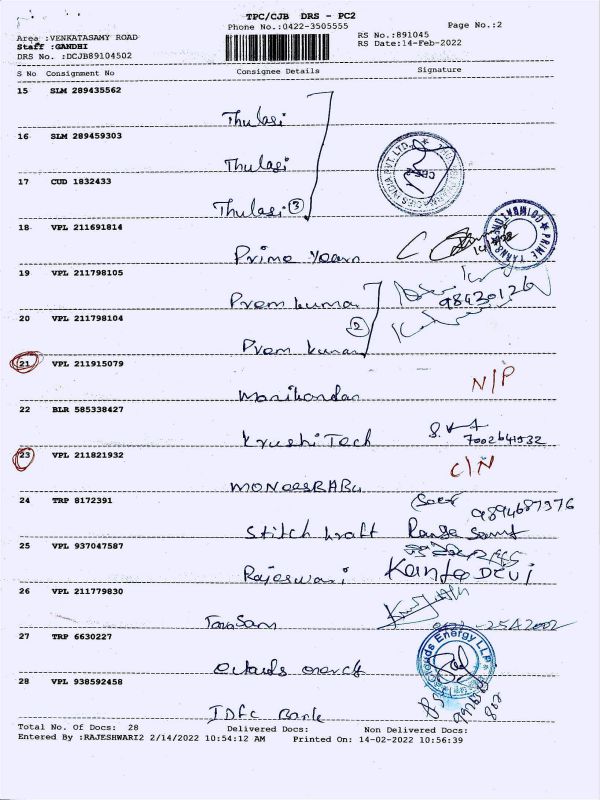 TPC/CJB DRS - PC2
Phone No.:0422-3505555
Page No.:2
Area :VENKATASAMY ROAD
Staff :GANDHI
DRS No. :DCJB89104502
RS No.:891045
RS Date:14-Feb-2022
S No Consignment No Consignee Details Signature
15 SLM 289435562
Thulasi
16 SLM 289459303
Thulasi
17 CUD 1832433
Thulasi 3
18 VPL 211691814
Prime Yearn
19 VPL 211798105
Prem kumar
98430126
20 VPL 211798104
2
Prem kumar
21 VPL 211915079
Manikandan N/P
22 BLR 585338427
KrushiTech
23 VPL 211821932
C/N
MONEESBABU
24 TRP 8172391
9894687376
Stitch kraft
25 VPL 937047587
Rajeswari Kanta DEVI
26 VPL 211779830
27 TRP 6630227
Clouds Energy LLP
28 VPL 938592458
IDFC Bank
Total No. of Docs: 28 Delivered Docs: Non Delivered Docs:
Entered By :RAJESHWARI2 2/14/2022 10:54:12 AM Printed On: 14-02-2022 10:56:39